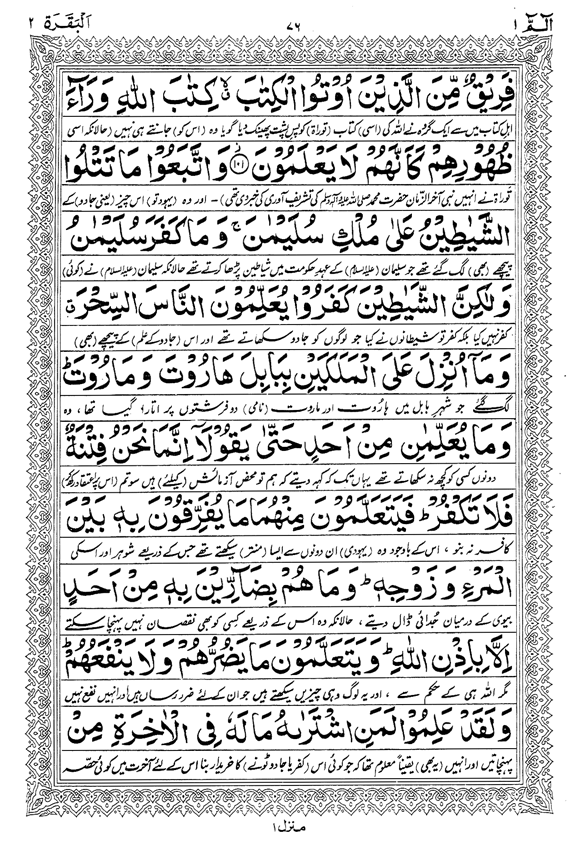 الٓمّٓ ١ ٧٦ اَلْبَقَرَة ٢
فَرِيْقٌ مِّنَ الَّذِيْنَ اُوْتُوا الْكِتٰبَ ۙۗ كِتٰبَ اللّٰهِ وَرَآءَ
اہلِ کتاب میں سے ایک گروہ نے اللہ کی (اسی) کتاب (تورات) کو پسِ پشت پھینک دیا گویا وہ (اس کو) جانتے ہی نہیں (حالانکہ اسی
ظُهُوْرِهِمْ كَاَنَّهُمْ لَا يَعْلَمُوْنَ ۟ۙ﴿١٠١﴾ وَاتَّبَعُوْا مَا تَتْلُوا
تورات نے انہیں نبی آخر الزّمان حضرت محمد صلی اللہ علیہ وآلہ وسلم کی تشریف آوری کی خبر دی تھی) - اور وہ (یہود تو) اس چیز (یعنی جادو) کے
الشَّيٰطِيْنُ عَلٰى مُلْكِ سُلَيْمٰنَ ۚ وَمَا كَفَرَ سُلَيْمٰنُ
پیچھے (بھی) لگ گئے تھے جو سلیمان (علیہ السلام) کے عہدِ حکومت میں شیاطین پڑھا کرتے تھے حالانکہ سلیمان (علیہ السلام) نے (کوئی)
وَلٰكِنَّ الشَّيٰطِيْنَ كَفَرُوْا يُعَلِّمُوْنَ النَّاسَ السِّحْرَ ۗ
کفر نہیں کیا بلکہ کفر تو شیطانوں نے کیا جو لوگوں کو جادو سکھاتے تھے اور اس (جادو کے علم) کے پیچھے (بھی)
وَمَآ اُنْزِلَ عَلَى الْمَلَكَيْنِ بِبَابِلَ هَارُوْتَ وَمَارُوْتَ ؕ
لگ گئے جو شہر بابل میں ہاروت اور ماروت (نامی) دو فرشتوں پر اتارا گیا تھا، وہ
وَمَا يُعَلِّمٰنِ مِنْ اَحَدٍ حَتّٰى يَقُوْلَآ اِنَّمَا نَحْنُ فِتْنَةٌ
دونوں کسی کو کچھ نہ سکھاتے تھے یہاں تک کہ کہہ دیتے کہ ہم تو محض آزمائش (کیلئے) ہیں سو تم (اس پر اعتقاد رکھ کر)
فَلَا تَكْفُرْ ؕ فَيَتَعَلَّمُوْنَ مِنْهُمَا مَا يُفَرِّقُوْنَ بِهٖ بَيْنَ
کافر نہ بنو، اس کے باوجود وہ (یہودی) ان دونوں سے ایسا (منتر) سیکھتے تھے جس کے ذریعے شوہر اور اسکی
الْمَرْءِ وَزَوْجِهٖ ؕ وَمَا هُمْ بِضَآرِّيْنَ بِهٖ مِنْ اَحَدٍ
بیوی کے درمیان جدائی ڈال دیتے، حالانکہ وہ اس کے ذریعے کسی کو بھی نقصان نہیں پہنچا سکتے
اِلَّا بِاِذْنِ اللّٰهِ ؕ وَيَتَعَلَّمُوْنَ مَا يَضُرُّهُمْ وَلَا يَنْفَعُهُمْ ؕ
مگر اللہ ہی کے حکم سے، اور یہ لوگ وہی چیزیں سیکھتے ہیں جو ان کے لئے ضرر رساں ہیں اور انہیں نفع نہیں
وَلَقَدْ عَلِمُوْا لَمَنِ اشْتَرٰىهُ مَا لَهٗ فِى الْاٰخِرَةِ مِنْ
پہنچاتیں اور انہیں (یہ بھی) یقیناً معلوم تھا کہ جو کوئی اس (کفر یا جادو ٹونے) کا خریدار بنا اس کے لئے آخرت میں کوئی حصہ
منزل ١